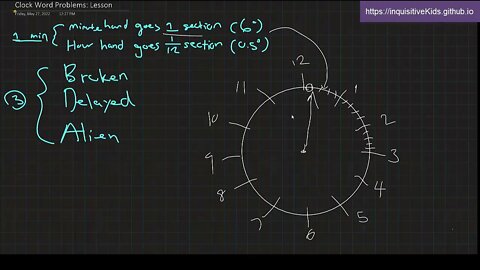 Clock Word Problems: Lesson
Friday, May 27, 2022 12:27 PM
https://inquisitiveKids.github.io
1 min
minute hand goes 1 section (6°)
Hour hand goes 1/12 section (0.5°)
3
Broken
Delayed
Alien
12
1
2
3
4
5
6
7
8
9
10
11